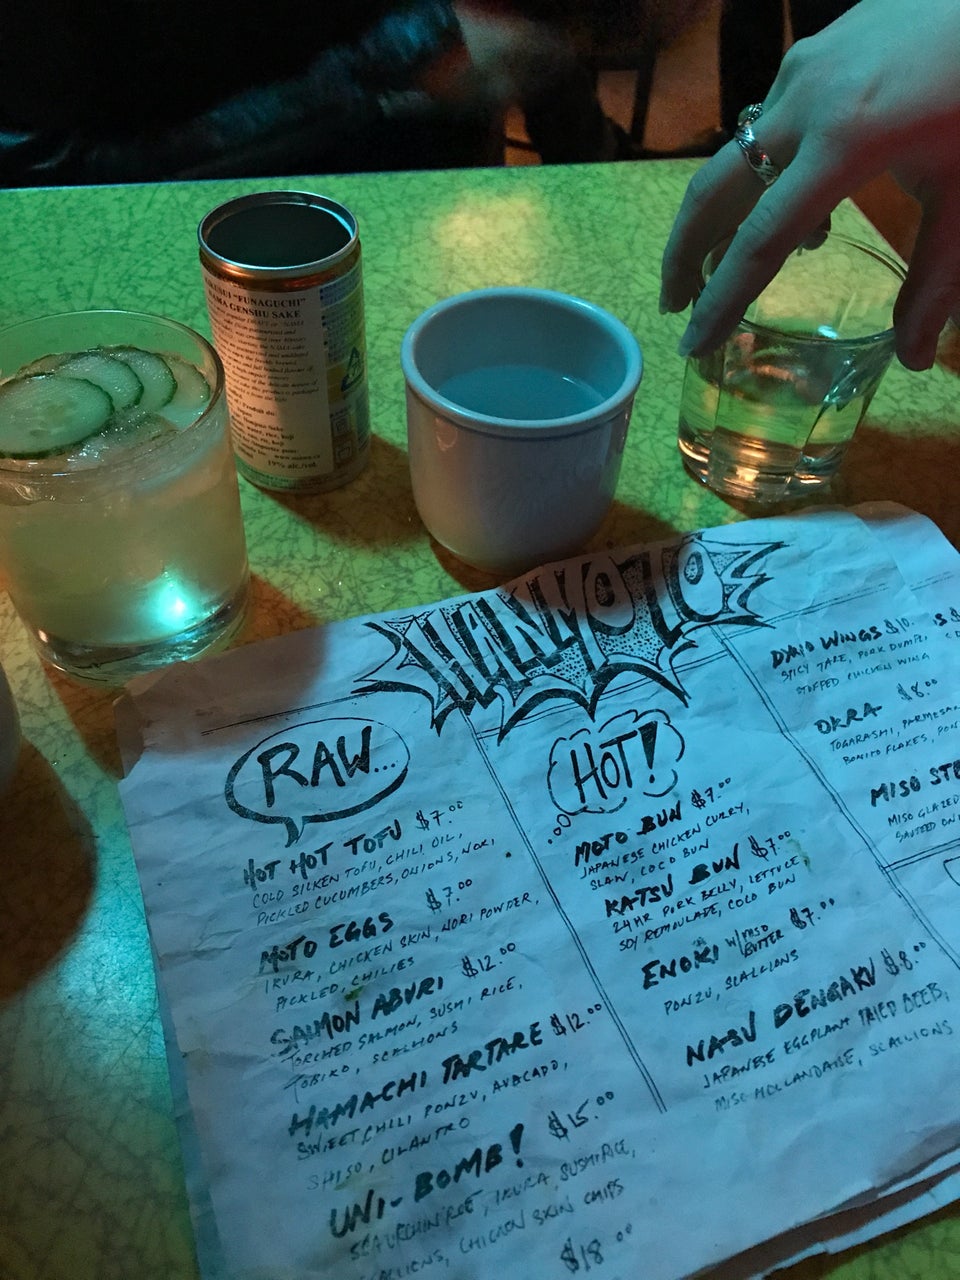 "FUNAGUCHI"
GENSHU SAKE
19% alc./vol.
HANMOTO
RAW...
HOT HOT TOFU $7.00
COLD SILKEN TOFU, CHILI OIL,
PICKLED CUCUMBERS, ONIONS, NORI
MOTO EGGS $7.00
IKURA, CHICKEN SKIN, NORI POWDER,
PICKLED, CHILIES
SALMON ABURI $12.00
TORCHED SALMON, SUSHI RICE,
TOBIKO, SCALLIONS
HAMACHI TARTARE $12.00
SWEET CHILI PONZU, AVOCADO,
SHISO, CILANTRO
UNI-BOMB! $15.00
SEA URCHIN ROE, IKURA, SUSHI RICE,
SCALLIONS, CHICKEN SKIN CHIPS
$18.00
HOT!
MOTO BUN $7.00
JAPANESE CHICKEN CURRY,
SLAW, COCO BUN
KATSU BUN $7.00
24HR PORK BELLY, LETTUCE
SOY REMOULADE, COCO BUN
ENOKI W/MISO BUTTER $7.00
PONZU, SCALLIONS
NASU DENGAKU $8.00
JAPANESE EGGPLANT FRIED BEEB,
MISO HOLLANDAISE, SCALLIONS
DYNO WINGS $10.
SPICY TARE, PORK DUMPL
STUFFED CHICKEN WING
OKRA $8.00
TOGARASHI, PARMESAN
BONITO FLAKES, PON
MISO STE
MISO GLAZED
SAUTEED ONI